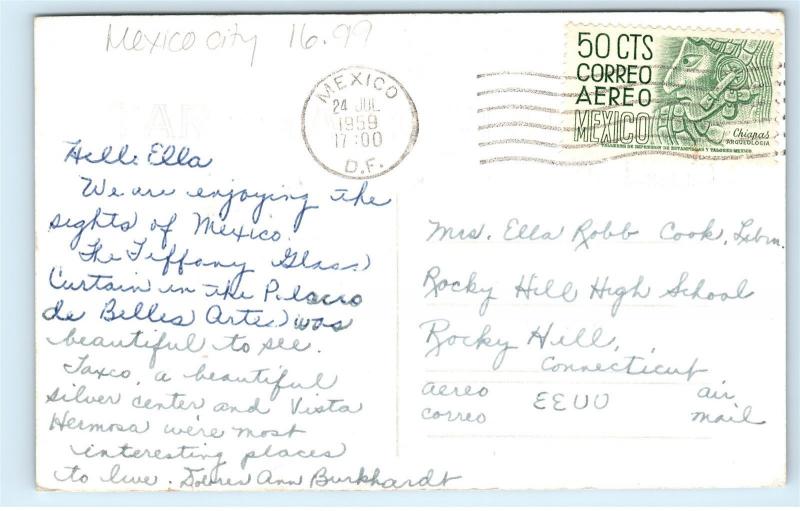 Mexico city 16.99
MEXICO
24 JUL
1959
17:00
D.F.
50 CTS
CORREO
AEREO
MEXICO
Chiapas
ARQUEOLOGIA
TALLERES DE IMPRESION DE ESTAMPILLAS Y VALORES-MEXICO
Hello Ella
We are enjoying the
sights of Mexico.
The Tiffany Glass
Curtain in the Palacio
de Belles Artes was
beautiful to see.
Taxco, a beautiful
silver center and Vista
Hermosa were most
interesting places
to live. Doleres Ann Burkhardt
Mrs. Ella Robb Cook, Libn.
Rocky Hill High School
Rocky Hill,
Connecticut
aereo EEUU air
correo mail